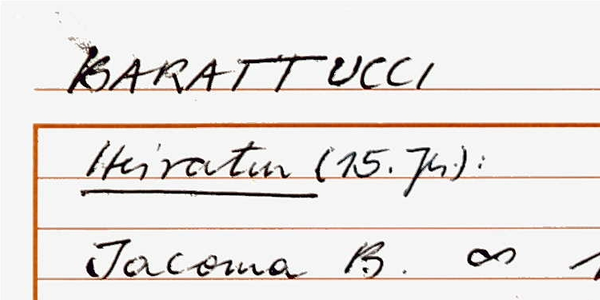 BARATTUCCI
Heiraten (15. Jh.):
Jacoma B. ∞